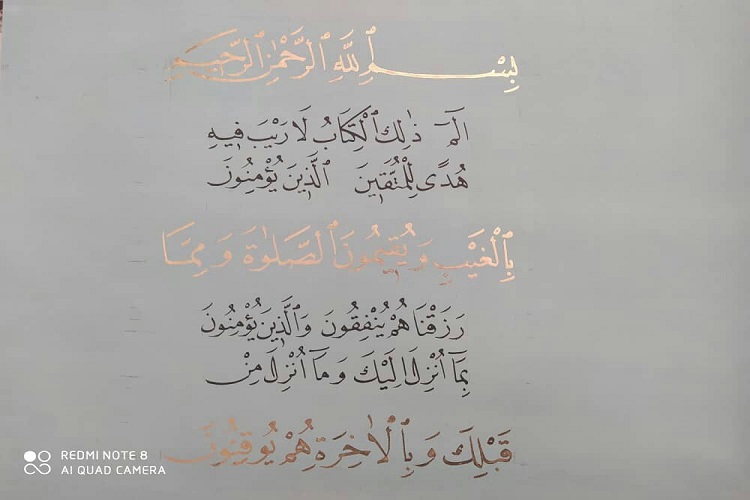 بِسْمِ ٱللَّهِ ٱلرَّحْمٰنِ ٱلرَّحِيمِ
الٓمٓ ذٰلِكَ ٱلْكِتَابُ لَا رَيْبَ فِيهِ
هُدًى لِلْمُتَّقِينَ ٱلَّذِينَ يُؤْمِنُونَ
بِٱلْغَيْبِ وَيُقِيمُونَ ٱلصَّلوٰةَ وَمِمَّا
رَزَقْنَاهُمْ يُنْفِقُونَ وَٱلَّذِينَ يُؤْمِنُونَ
بِمَآ اُنْزِلَ اِلَيْكَ وَمَآ اُنْزِلَ مِنْ
قَبْلِكَ وَبِٱلْاٰخِرَةِ هُمْ يُوقِنُونَ
REDMI NOTE 8
AI QUAD CAMERA